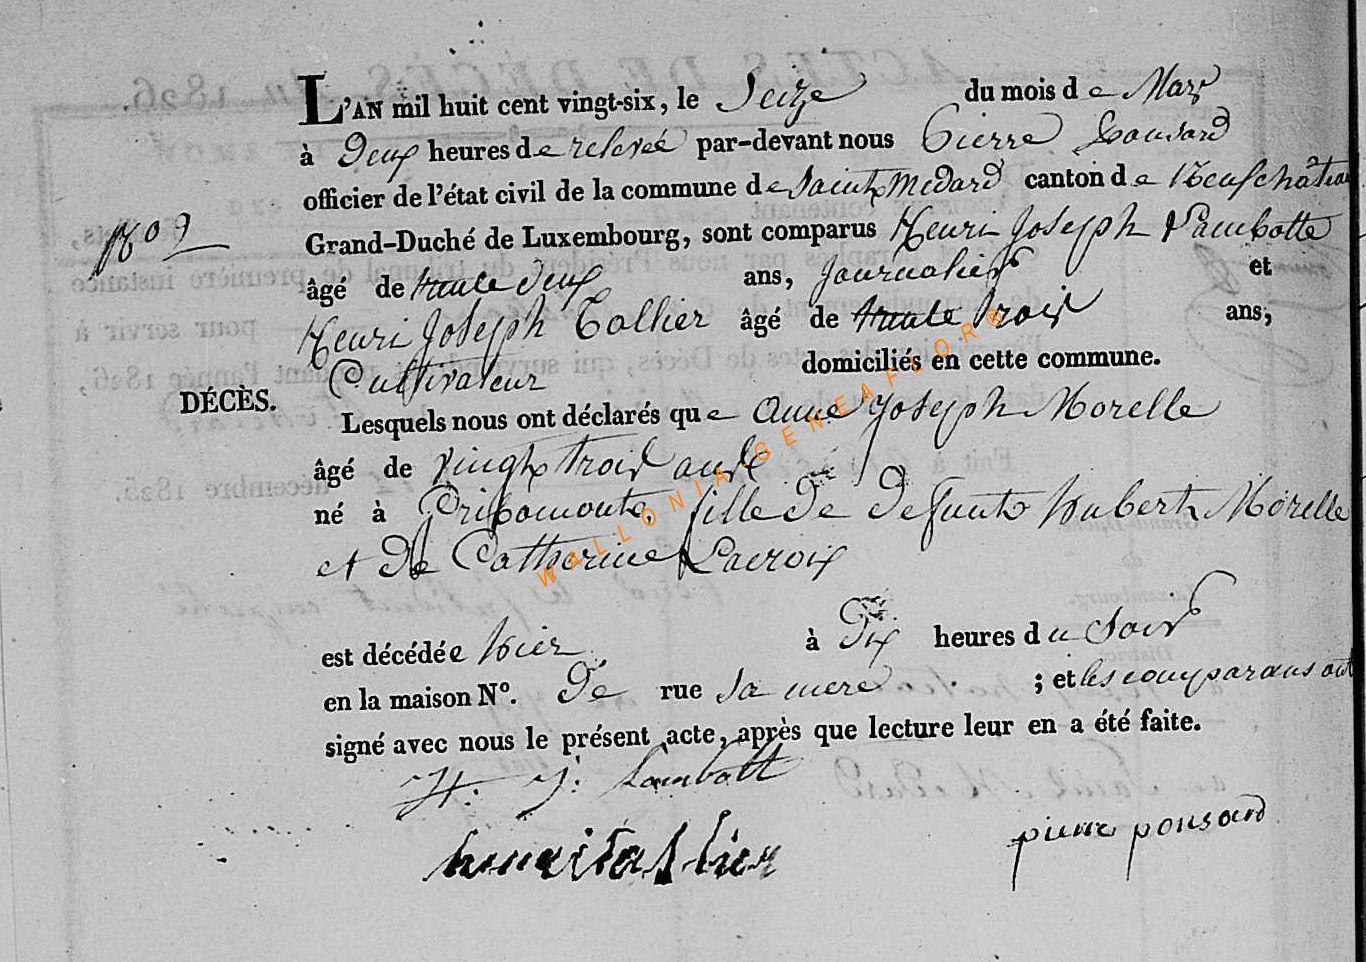 L'AN mil huit cent vingt-six, le Seize du mois de Mars
à Deux heures de relevée par-devant nous Pierre Ponsard
officier de l'état civil de la commune de Saint Medard canton de Neufchâteau
N° 9
Grand-Duché de Luxembourg, sont comparus Henri Joseph Lambotte
âgé de trente deux ans, Journalier et
Henri Joseph Tallier âgé de trente trois ans,
Cultivateur domiciliés en cette commune.
DÉCÈS.
Lesquels nous ont déclarés que Anne Joseph Morelle
âgé de vingt trois ans
né à Gribomont, fille de defunt Hubert Morelle
et de Catherine Lacroix
est décédée hier à Dix heures du Soir
en la maison N°. De rue sa mere ; et les comparans ont
signé avec nous le présent acte, après que lecture leur en a été faite.
H. J. Lambott
pierre ponsard
WALLONIA GENEAFLORE®